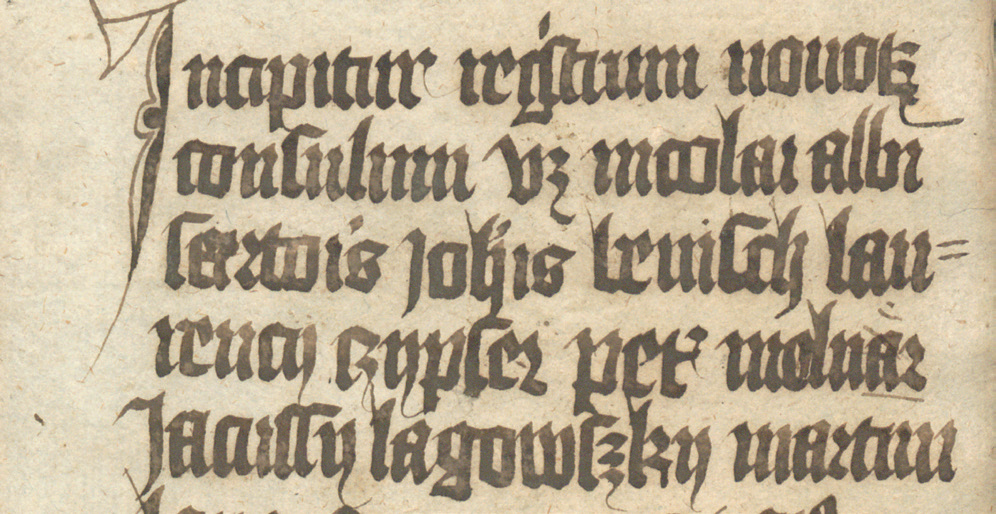 Incipitur regestrum novorum
consulum vz nicolai albi
sartoris Johis lenisch lau=
rencij czypser petr molnar
Jacussij lagowszkij martini